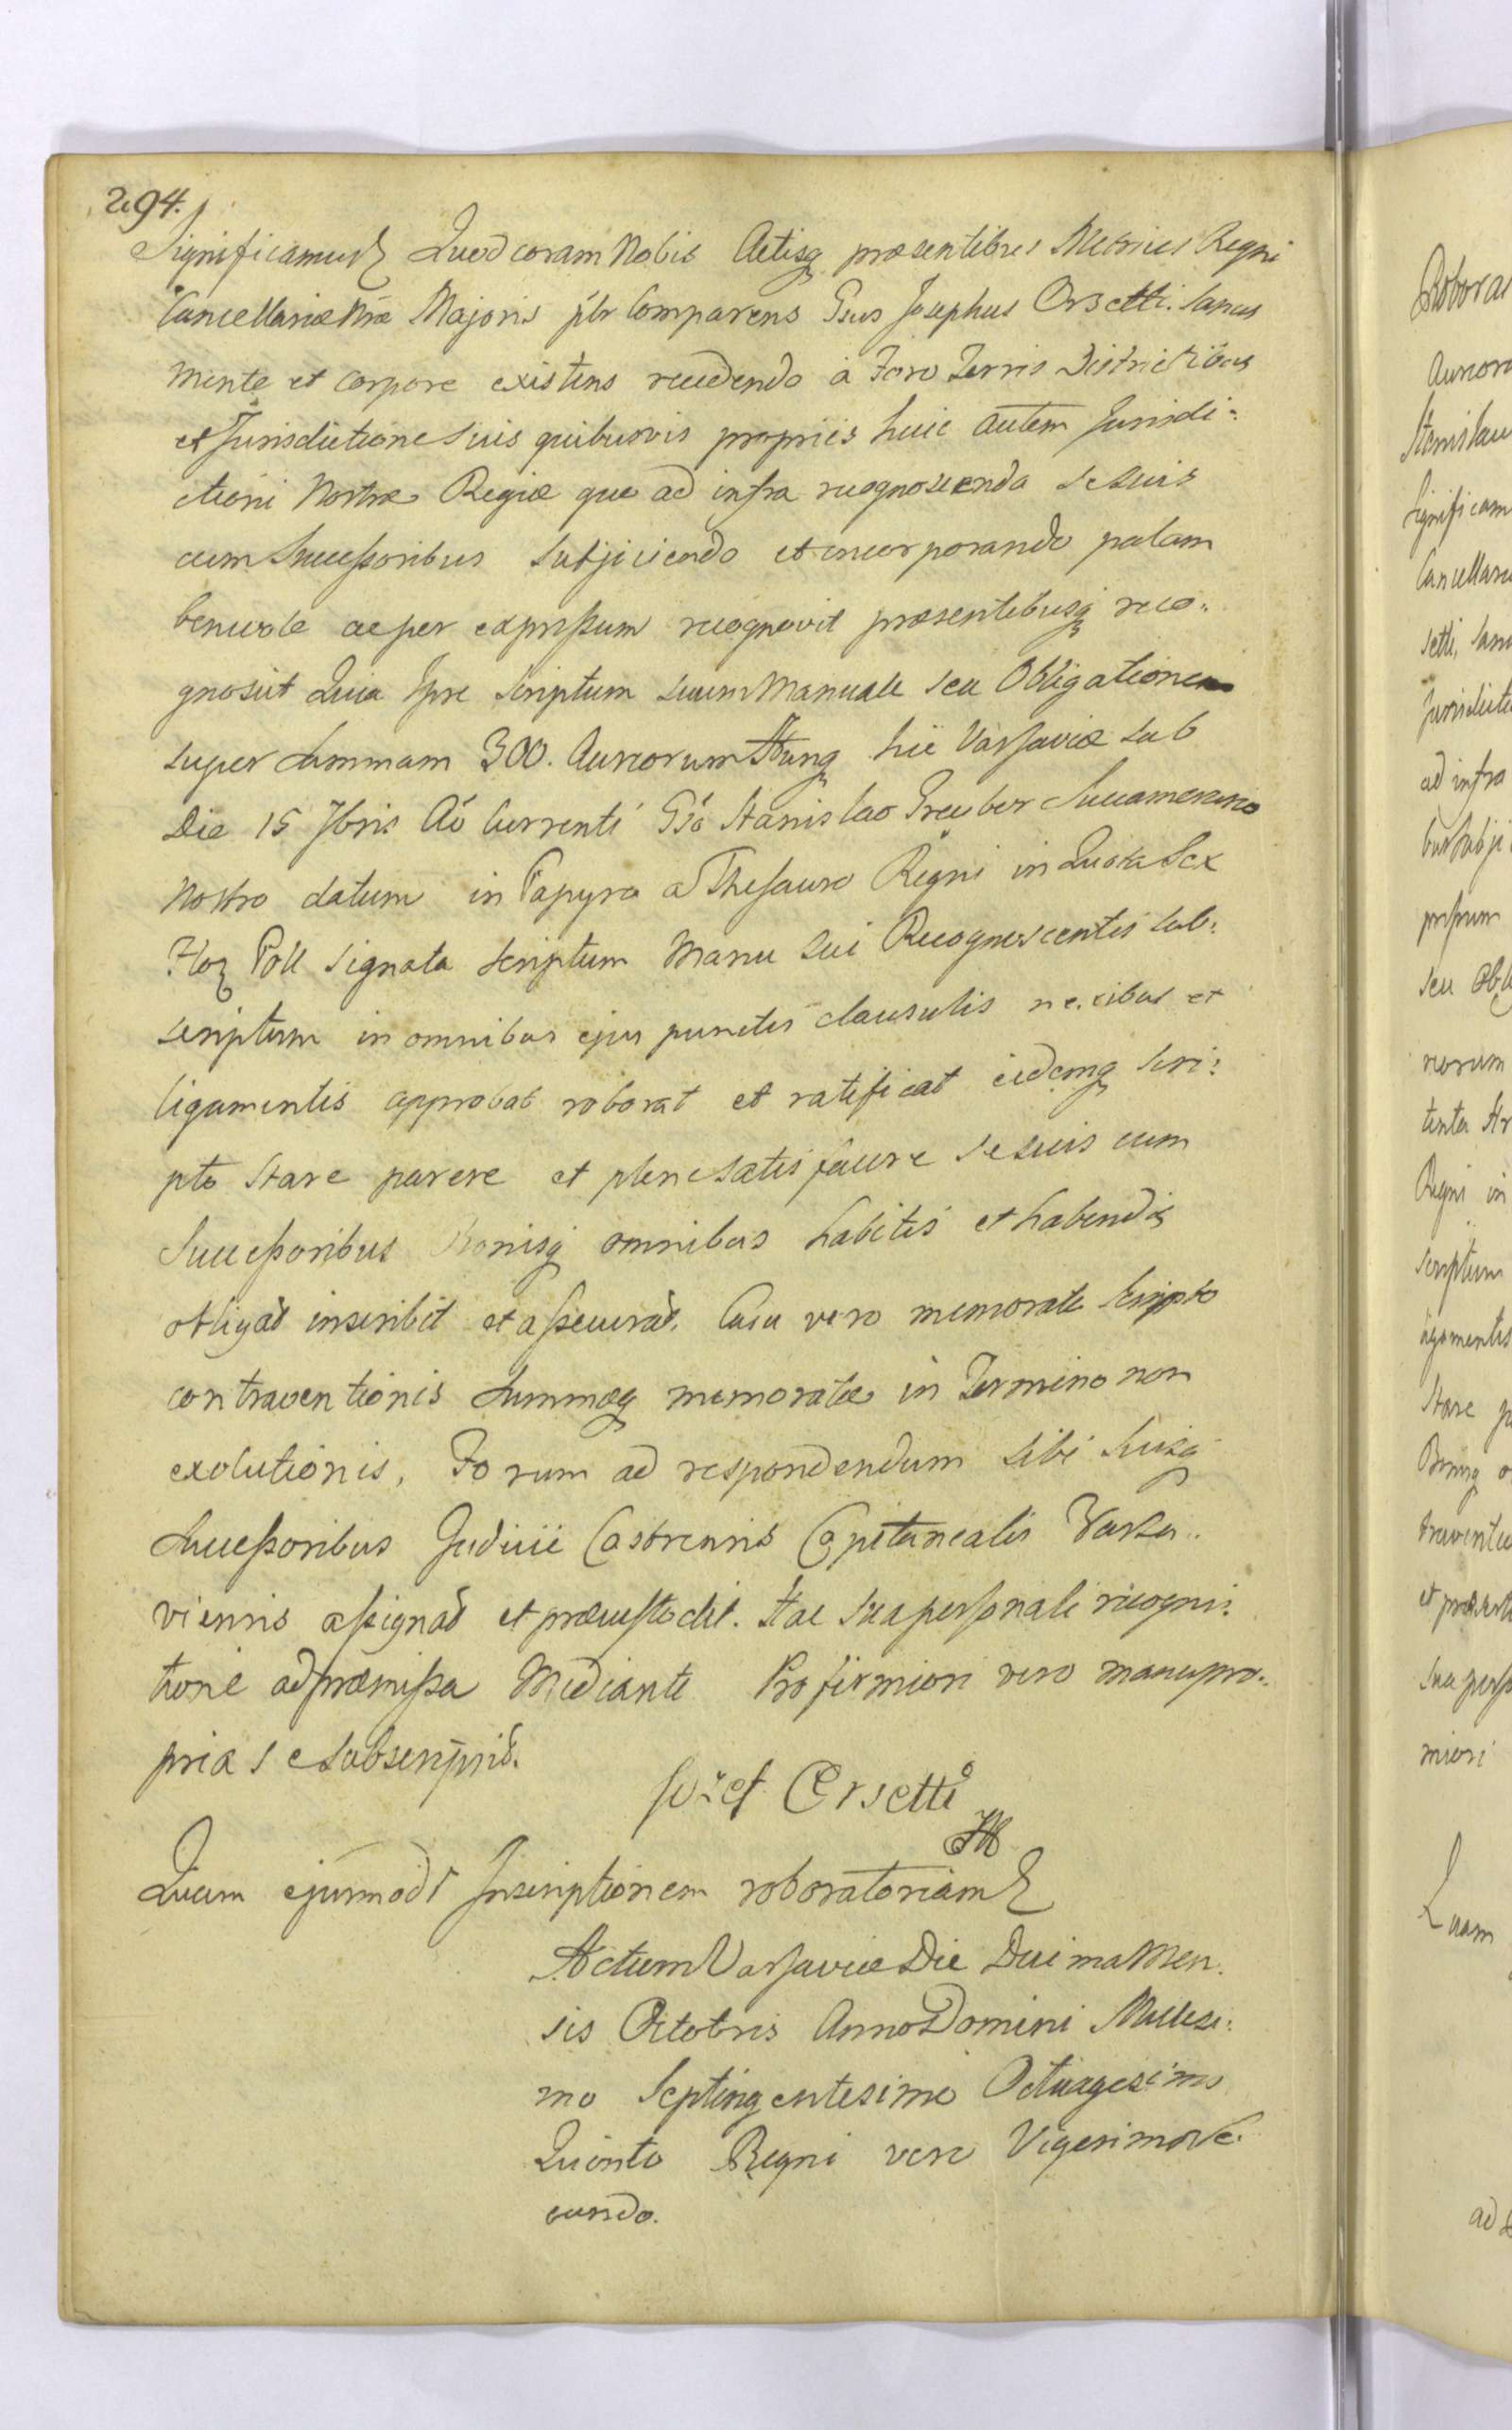 294.
Significamus Quod coram Nobis Actisq præsentibus Metrices Regni
Cancellariæ Nræ Majoris plr Comparens Gsus Josephus Orsetti. Sanus
mente et corpore existens recedendo à Foro Terris Districtibus
et Jurisdictione suis quibusvis propriis huic autem Jurisdi:
ctioni Nostræ Regiæ quo ad infra recognoscenda se suis
cum Successoribus subjiciendo et incorporando palam
benevole ac per expressum recognovit præsentibusq reco:
gnoscit Quia Ipse scriptum suum Manuale seu Obligationem
super Summam 300. Aureorum Hung hic Varsaviæ sub
Die 15 7bris Aõ Currenti Gsõ Stanislao Greyber Succamerario
Nostro datum in Papyro a Thesauro Regni in Quota Sex
Flor Poll signata scriptum Manu sui Recognoscentis sub:
scriptum in omnibus ejus punctis clausulis nexibus et
ligamentis approbat roborat et ratificat eidemq scri:
pto stare parere et plene satisfacere se suis cum
Successoribus Bonisq omnibus habitis et habendis
obligat inscribit et assecurat. Casu vero memorato Scripto
contraventionis Summæq memoratæ in Termino non
exolutionis, Forum ad respondendum sibi suisq
Successoribus Judicii Castrensis Capitanealis Varsa:
viensis assignat et præcustodit. Hac sua personali recogni:
tione ad præmissa Mediante Pro firmiori vero manu pro:
pria se subscripsit.
Jozef Orsetti
Quam ejusmodi Inscriptionem roboratoriam
Actum Varsaviæ Die Decima Men:
sis Octobris Anno Domini Millesi:
mo Septingentesimo Octuagesimo
Quinto Regni vero Vigesimo Se:
cundo.
Roborat
Aureor
Stanislau
Significam
Cancellari
setti, San
Jurisdicti
ad infra
bus subji
pressum
seu Obli
reorum
Regni in
scriptum
ligamentis
stare p
Bonisq o
traventio
sua perso
miori
Quam